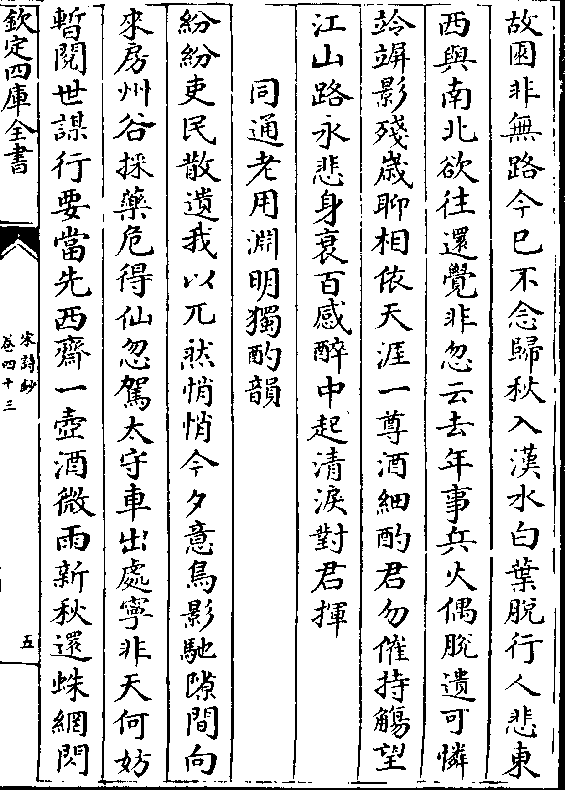 故園非無路今已不念歸秋入漢水白葉脫行人悲東
西與南北欲往還覺非忽云去年事兵火偶脫遺可憐
竛竮影殘歲聊相依天涯一尊酒細酌君勿催持觴望
江山路永悲身衰百感醉中起清淚對君揮
同通老用淵明獨酌韻
紛紛吏民散遺我以兀然悄悄今夕意鳥影馳隙間向
來房州谷採藥危得仙忽駕太守車出處寧非天何妨
暫閱世謀行要當先西齋一壺酒微雨新秋還蛛網閃
欽定四庫全書
宋詩鈔
卷四十三
五